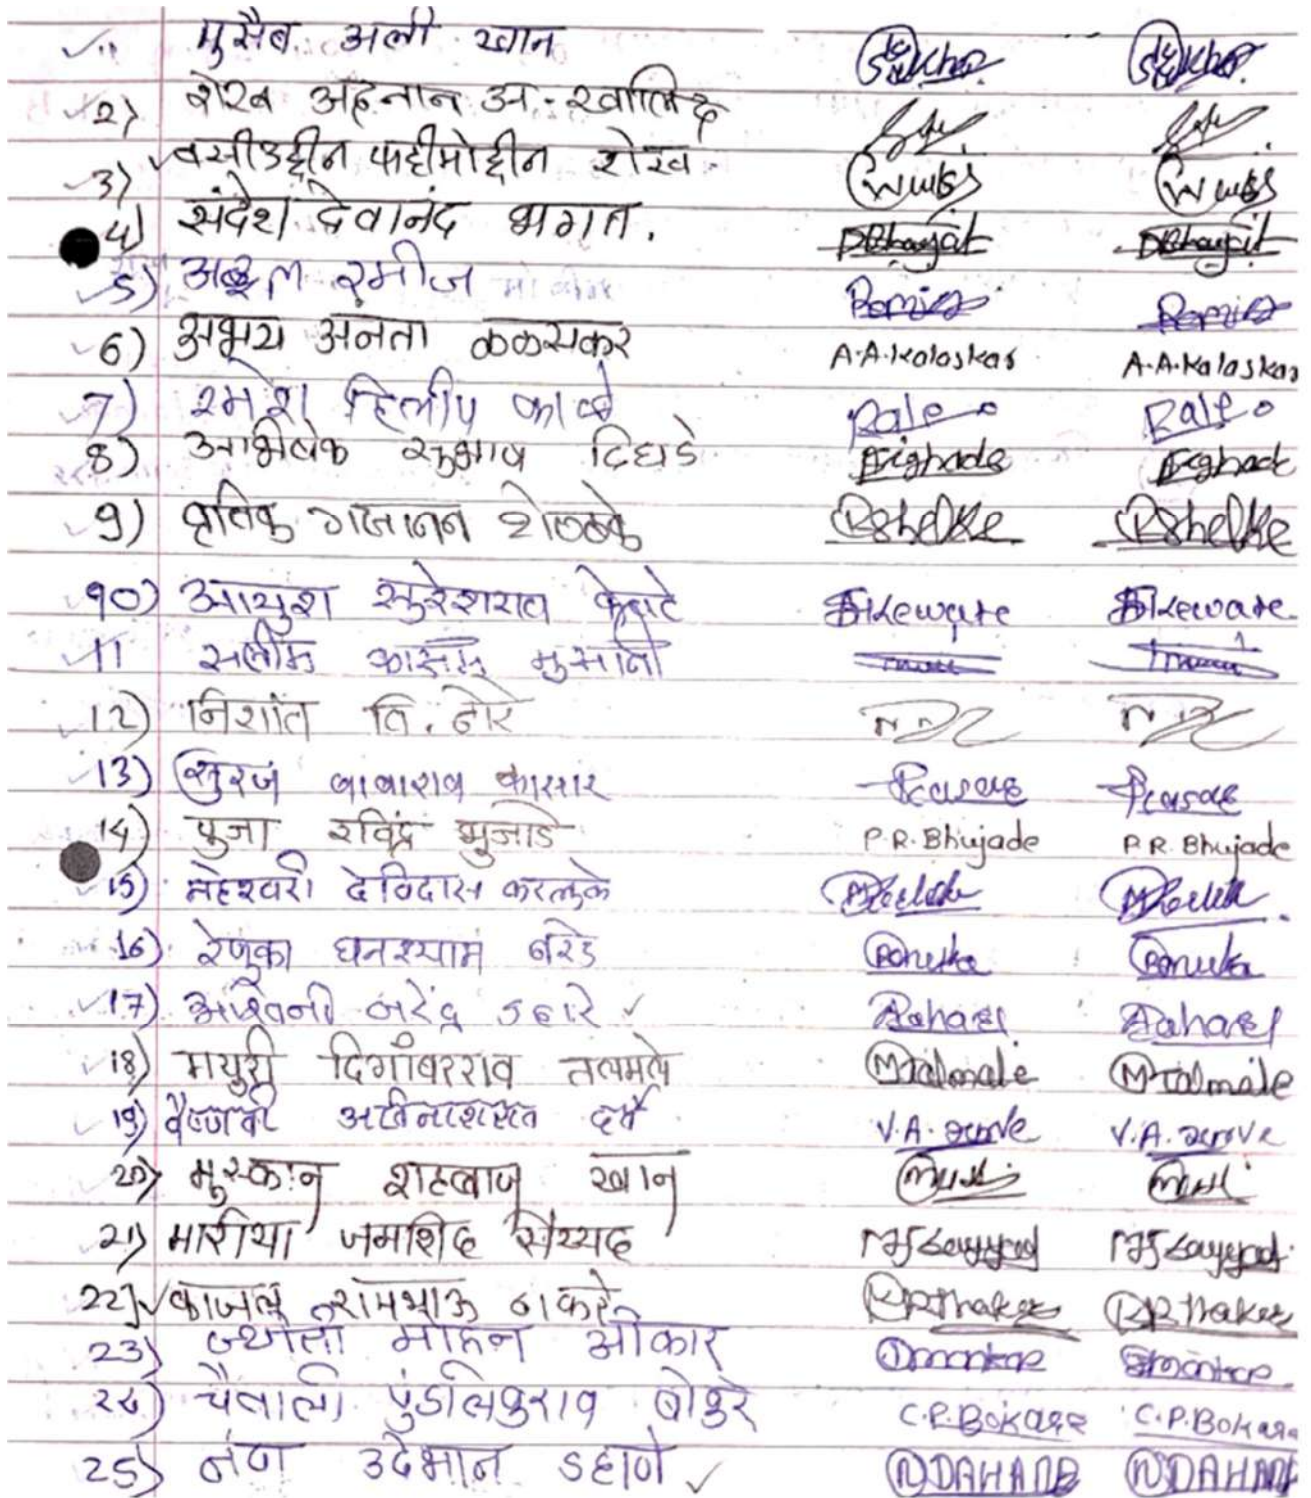 १) मुसैब अली खान
2) शेख अदनान अ. खालिद
3) वसीउद्दीन फहीमोद्दीन शेख
4) संदेश देवानंद भगत. DBhagat DBhagat
5) अब्दुल रमीज Ramiz Ramiz
6) अभय अनंता कळसकर A.A.Kalaskar A.A.Kalaskar
7) रमेश दिलीप काळे Rale Rale
8) अभिषेक सुभाष दिघडे Dighade Dighade
9) प्रतिक गजानन शेळके Pshelke Pshelke
१०) आयुश सुरेशराव केवटे
11 सलीम कासम मुसानी
12) निशांत वि. ढोरे
13) सुरज बाबाराव कासार
14) पुजा रविंद्र भुजाडे P.R.Bhujade P.R.Bhujade
15) महेश्वरी देविदास करलुके
16) रेणुका घनश्याम बरडे Renuka Renuka
17) अश्विनी नरेंद्र डहारे
18) मयुरी दिगांबरराव तलमले MTalmale MTalmale
19) वैष्णवी अविनाशराव दुर्वे V.A. V.A.
20) मुस्कान शहबाज खान
21) मारीया जमशिद सैय्यद MJSayyad MJSayyad
22) काजल रामभाऊ ठाकरे RRThakre RRThakre
23) ज्योती मोहन ओंकार
24) चैताली पुंडलिकराव बोकरे C.P.Bokare C.P.Bokare
25) उदेभान डहाणे NDAHANE NDAHANE